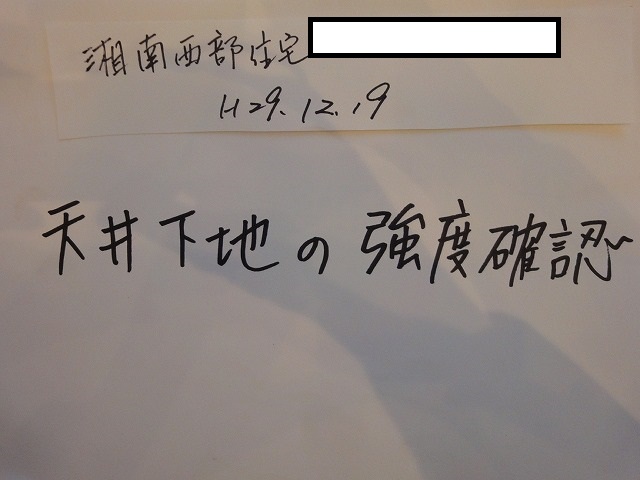 湘南西部住宅
H29.12.19
天井下地の強度確認